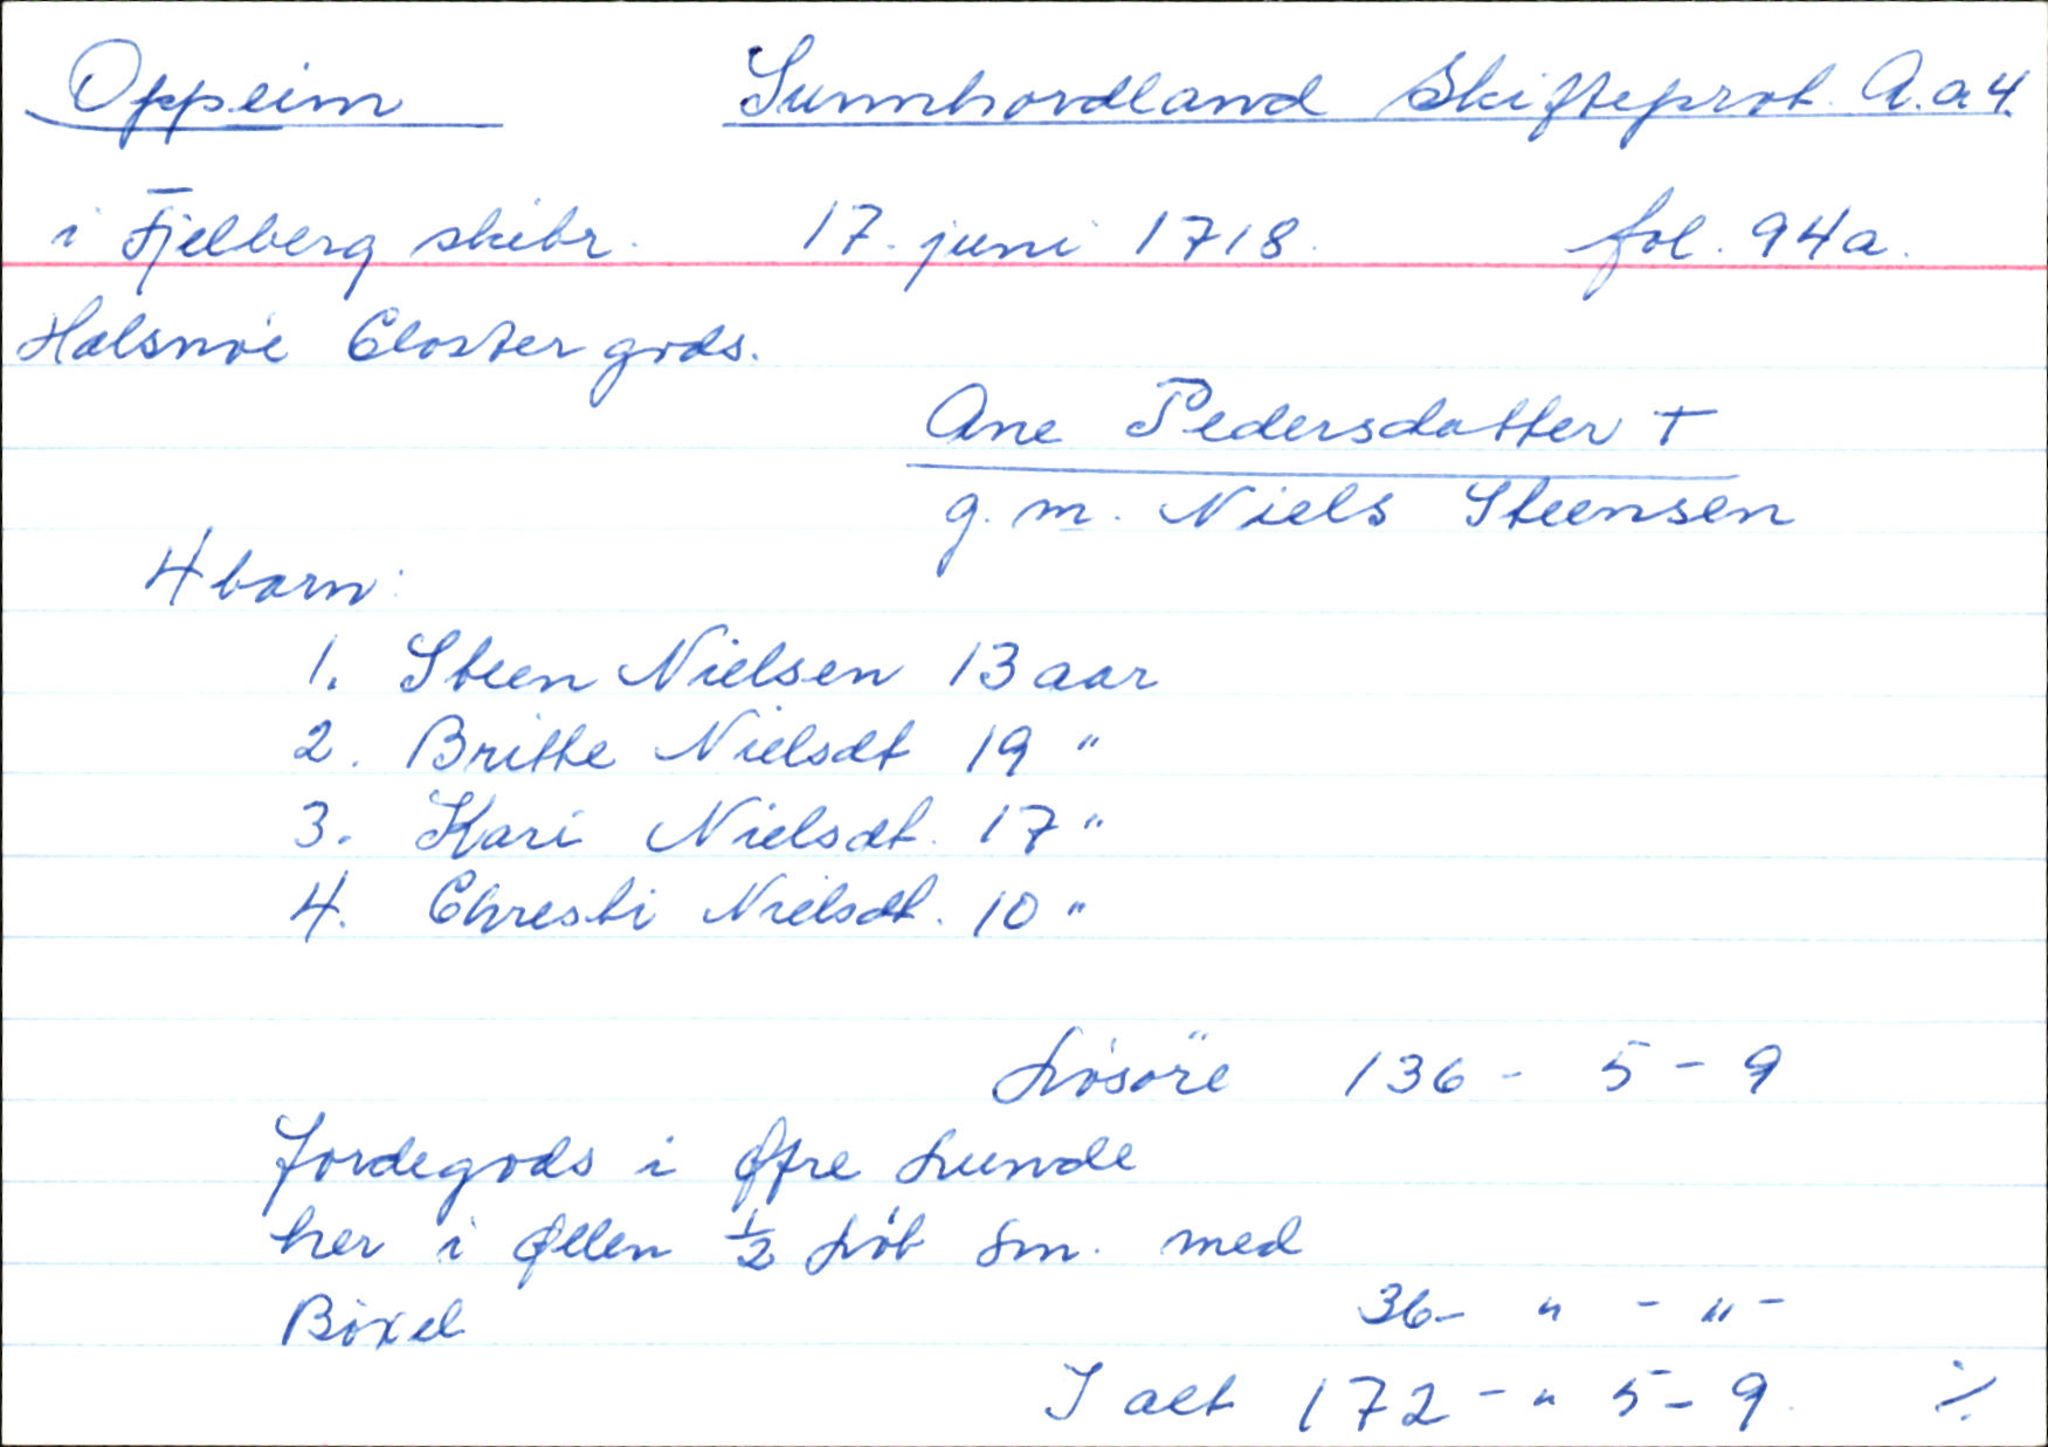 Oppeim Sunnhordland Skifteprot. A.a 4.
i Fjelberg skibr. 17. juni 1718. fol. 94a.
Halsnöe Closter gods.
Ane Pedersdatter +
g. m. Niels Steensen
4 barn:
1. Steen Nielsen 13 aar
2. Britte Nielsdt 19 "
3. Kari Nielsdt. 17 "
4. Chresti Nielsdt. 10 "
Lösöre 136 - 5 - 9
Jordegods i Øfre Lunde
her i Ølen ½ Löb Sm. med
Böxel 36 - " - " -
I alt 172 - " 5 - 9 ⁒